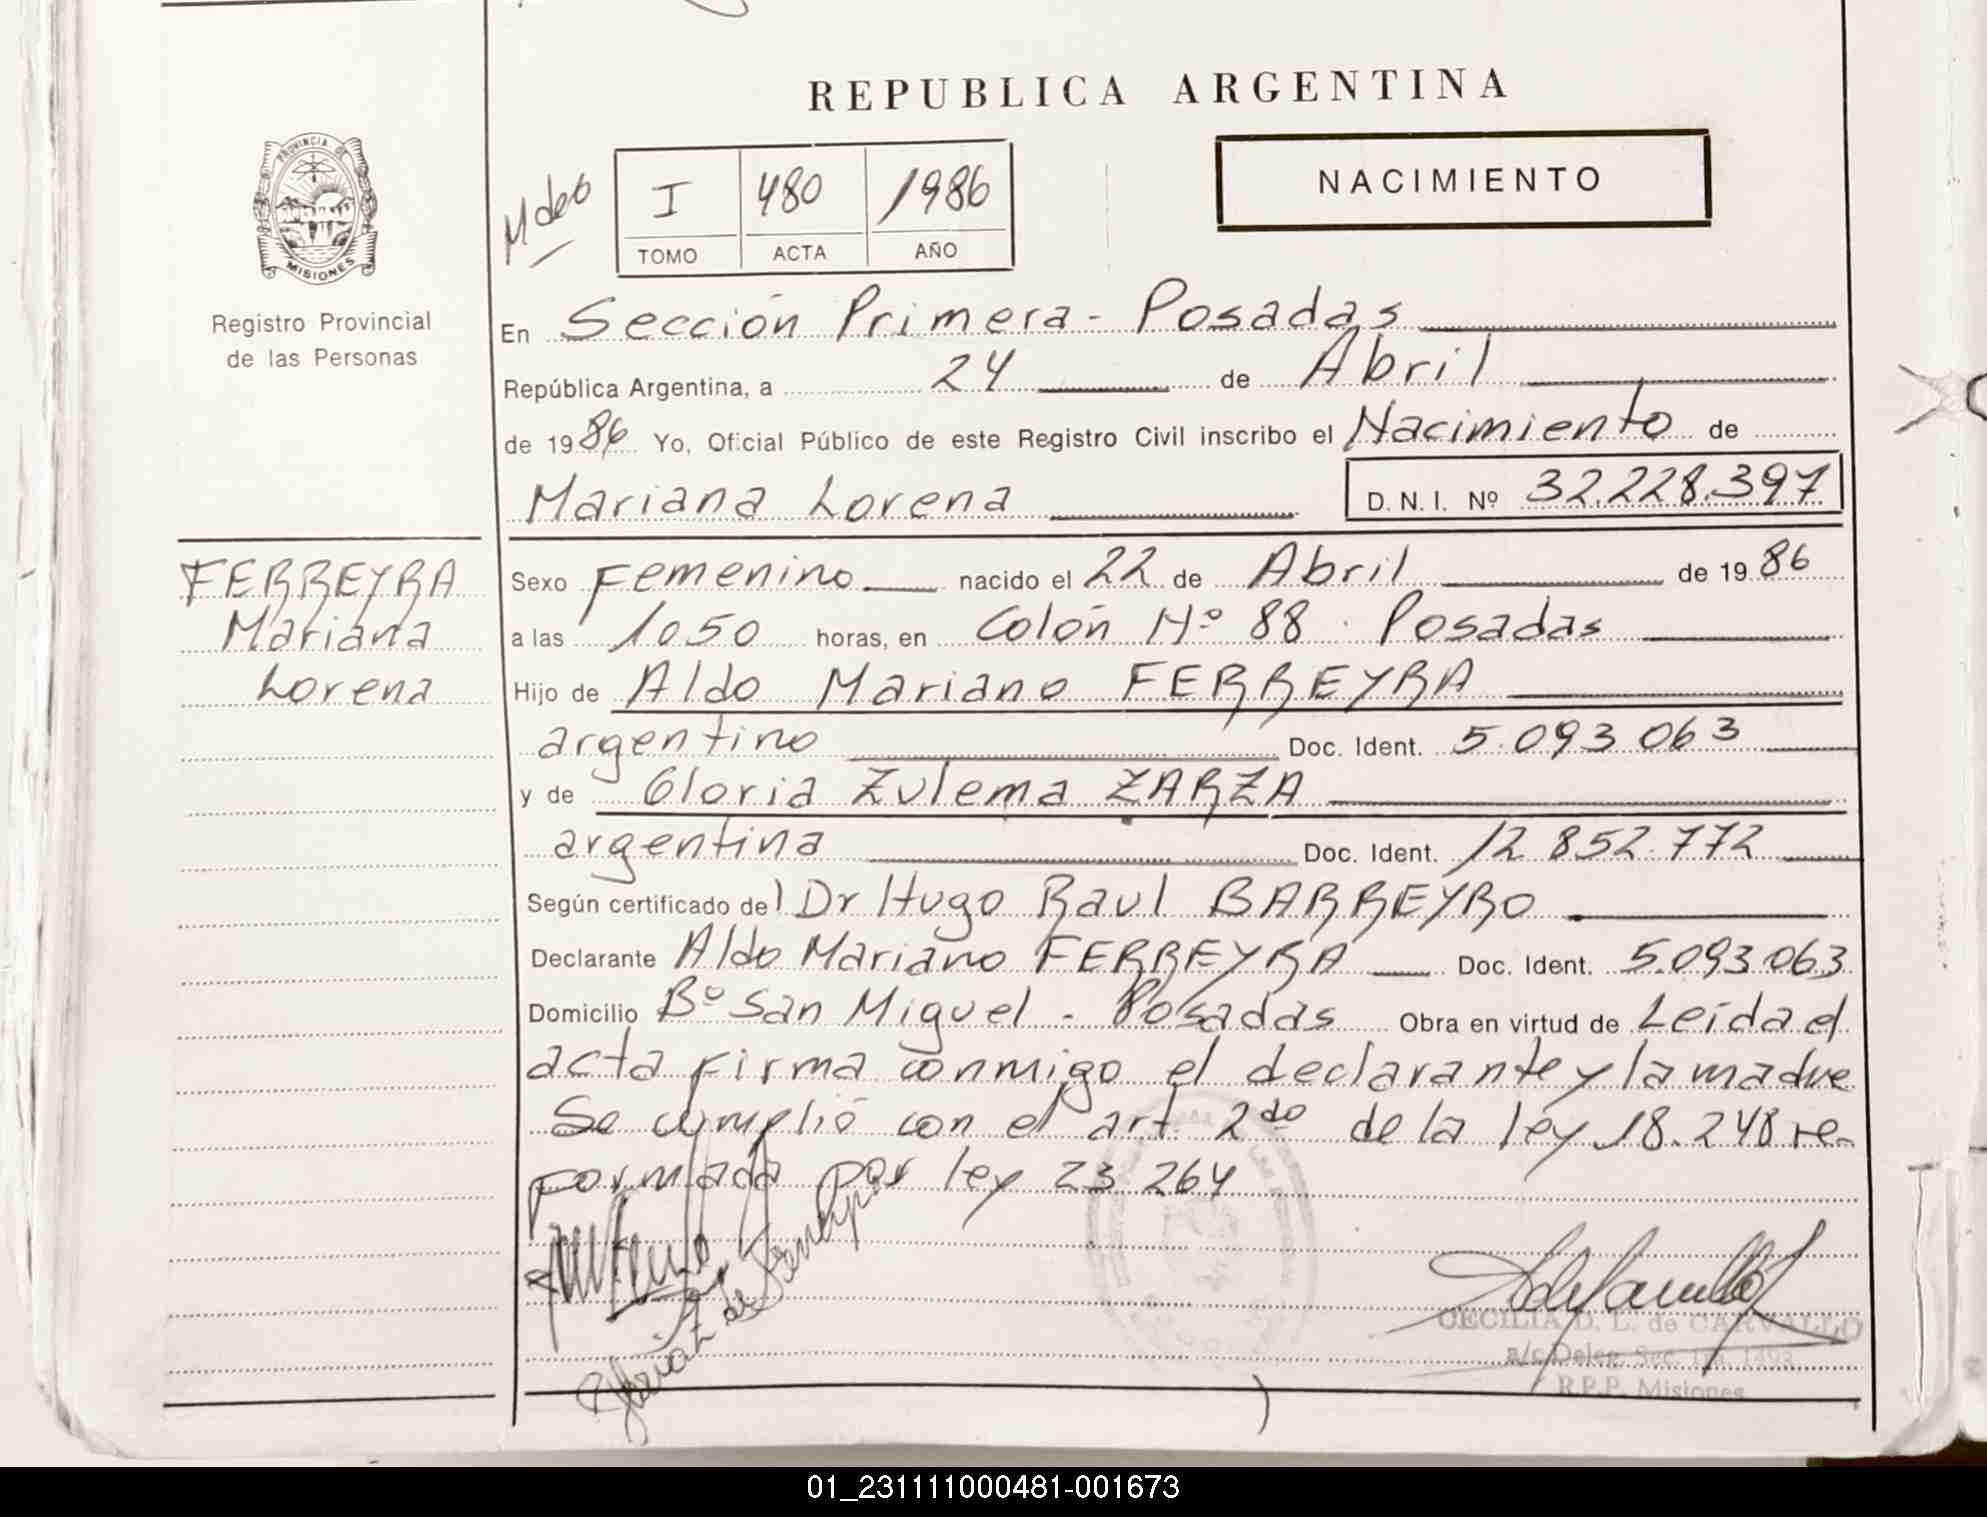 REPUBLICA ARGENTINA
PROVINCIA DE
MISIONES
Registro Provincial
de las Personas
I 480 1986
TOMO ACTA AÑO
NACIMIENTO
En Sección Primera - Posadas
República Argentina, a 24 de Abril
de 1986 Yo, Oficial Público de este Registro Civil inscribo el Nacimiento de
Mariana Lorena D.N.I. Nº 32.228.397
FERREYRA
Mariana
Lorena
Sexo Femenino nacido el 22 de Abril de 1986
a las 1050 horas, en Colón Nº 88 . Posadas
Hijo de Aldo Mariano FERREYRA
argentino Doc. Ident. 5.093.063
y de Gloria Zulema ZARZA
argentina Doc. Ident. 12.852.772
Según certificado del Dr Hugo Raul BARREYRO
Declarante Aldo Mariano FERREYRA Doc. Ident. 5.093.063
Domicilio Bº San Miguel - Posadas Obra en virtud de Leída el
acta firma conmigo el declarante y la madre
Se cumplió con el art 2do de la ley 18.248 re-
formada por ley 23.264
CECILIA D. L. de CARVALLO
a/c Deleg. Sec. 1ra.
R.P.P. Misiones
01_231111000481-001673